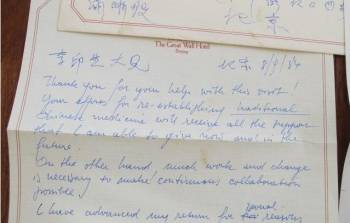 北京
The Great Wall Hotel
Beijing
李印生大夫 北京 8/9/84
Thank you for your help with this visit!
Your efforts for re-establishing traditional
Chinese medicine will receive all the support
that I am able to give now and in the
future.
On the other hand, much work and change
is necessary to make continuous collaboration
possible.
I have advanced my return for several reasons